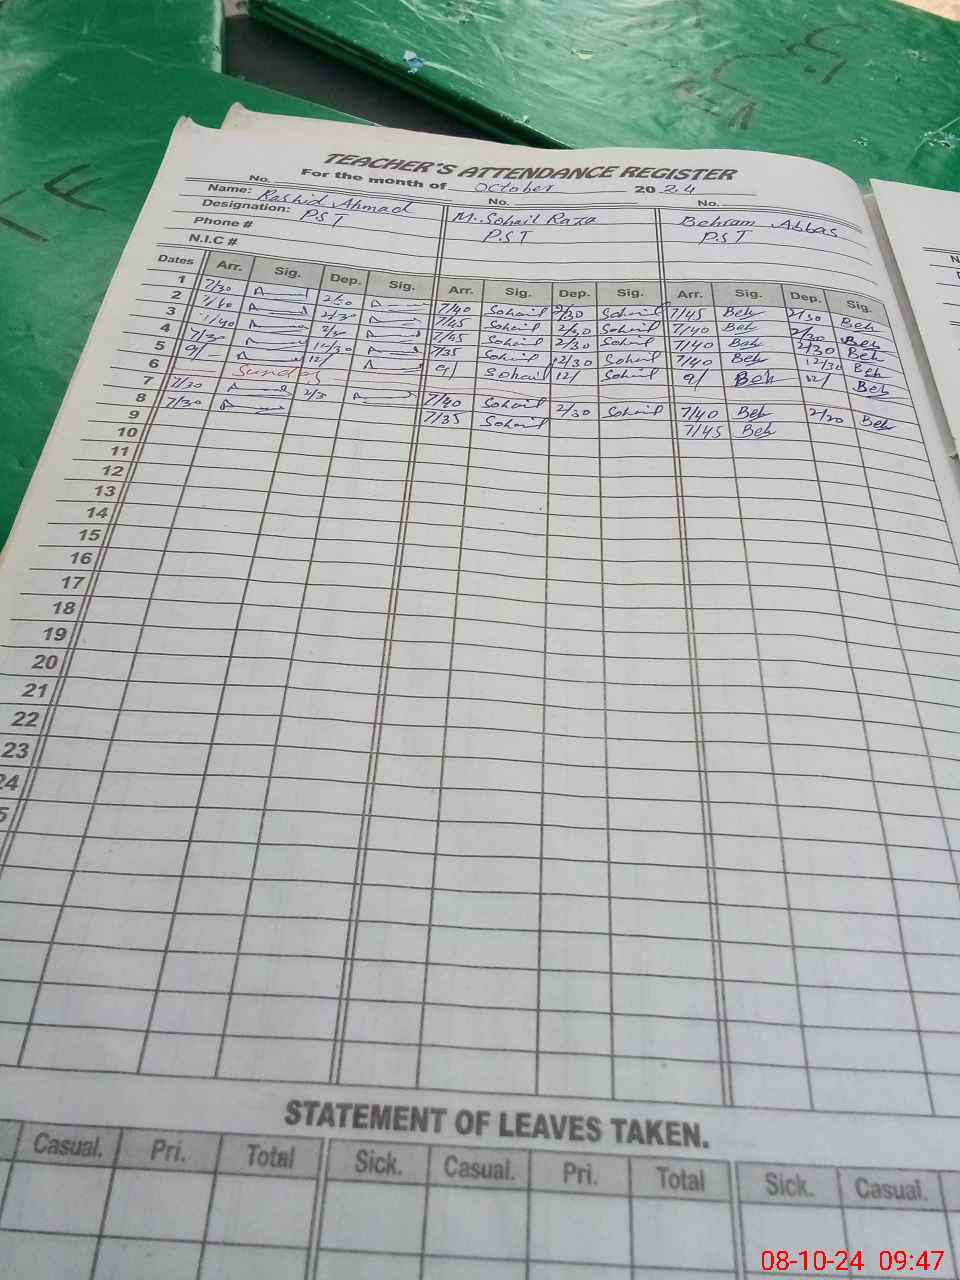 TEACHER'S ATTENDANCE REGISTER
For the month of October 2024
No. No. No.
Name: Rashid Ahmad M. Sohail Raza Behram Abbas
Designation: PST P.ST P.ST
Phone #
N.I.C #
Dates Arr. Sig. Dep. Sig. Arr. Sig. Dep. Sig. Arr. Sig. Dep. Sig.
1 7/30 7/40 Sohail 2/30 Sohail 7/45 Beh 2/30 Beh
2 7/45 Sohail 2/30 Sohail 7/40 Beh 2/30 Beh
3 7/40 7/45 Sohail 2/30 Sohail 7/40 Beh 2/30 Beh
4 7/30 12/30 7/35 Sohail 12/30 Sohail 7/40 Beh 12/30 Beh
5 9/- 12/ 9/ Sohail 12/ Sohail 9/ Beh 12/ Beh
6 Sunday
7 7/30 2/3 7/40 Sohail 2/30 Sohail 7/40 Beh Beh
8 7/30 7/35 Sohail 7/45 Beh
9
10
11
12
13
14
15
16
17
18
19
20
21
22
23
24
5
STATEMENT OF LEAVES TAKEN.
Casual. Pri. Total Sick. Casual. Pri. Total Sick. Casual.
08-10-24 09:47